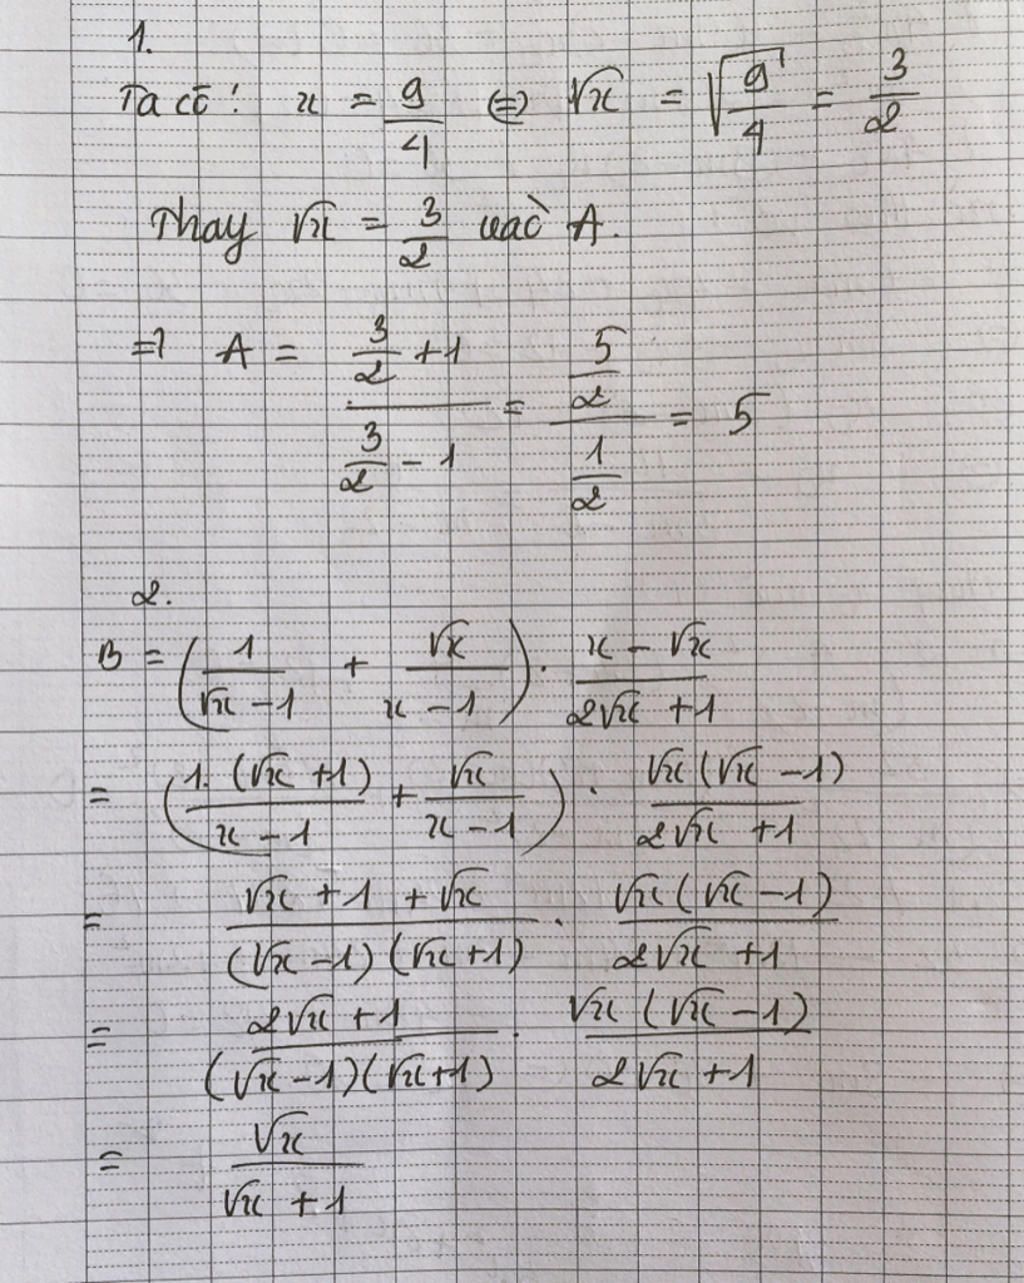 1.
Ta có: x = 9/4 ⇔ √x = √(9/4) = 3/2
Thay √x = 3/2 vào A.
⇒ A = (3/2 + 1)/(3/2 - 1) = (5/2)/(1/2) = 5
2.
B = (1/(√x - 1) + √x/(x - 1)) . (x - √x)/(2√x + 1)
= (1.(√x + 1)/(x - 1) + √x/(x - 1)) . √x(√x - 1)/(2√x + 1)
= (√x + 1 + √x)/((√x - 1)(√x + 1)) . √x(√x - 1)/(2√x + 1)
= (2√x + 1)/((√x - 1)(√x + 1)) . √x(√x - 1)/(2√x + 1)
= √x/(√x + 1)